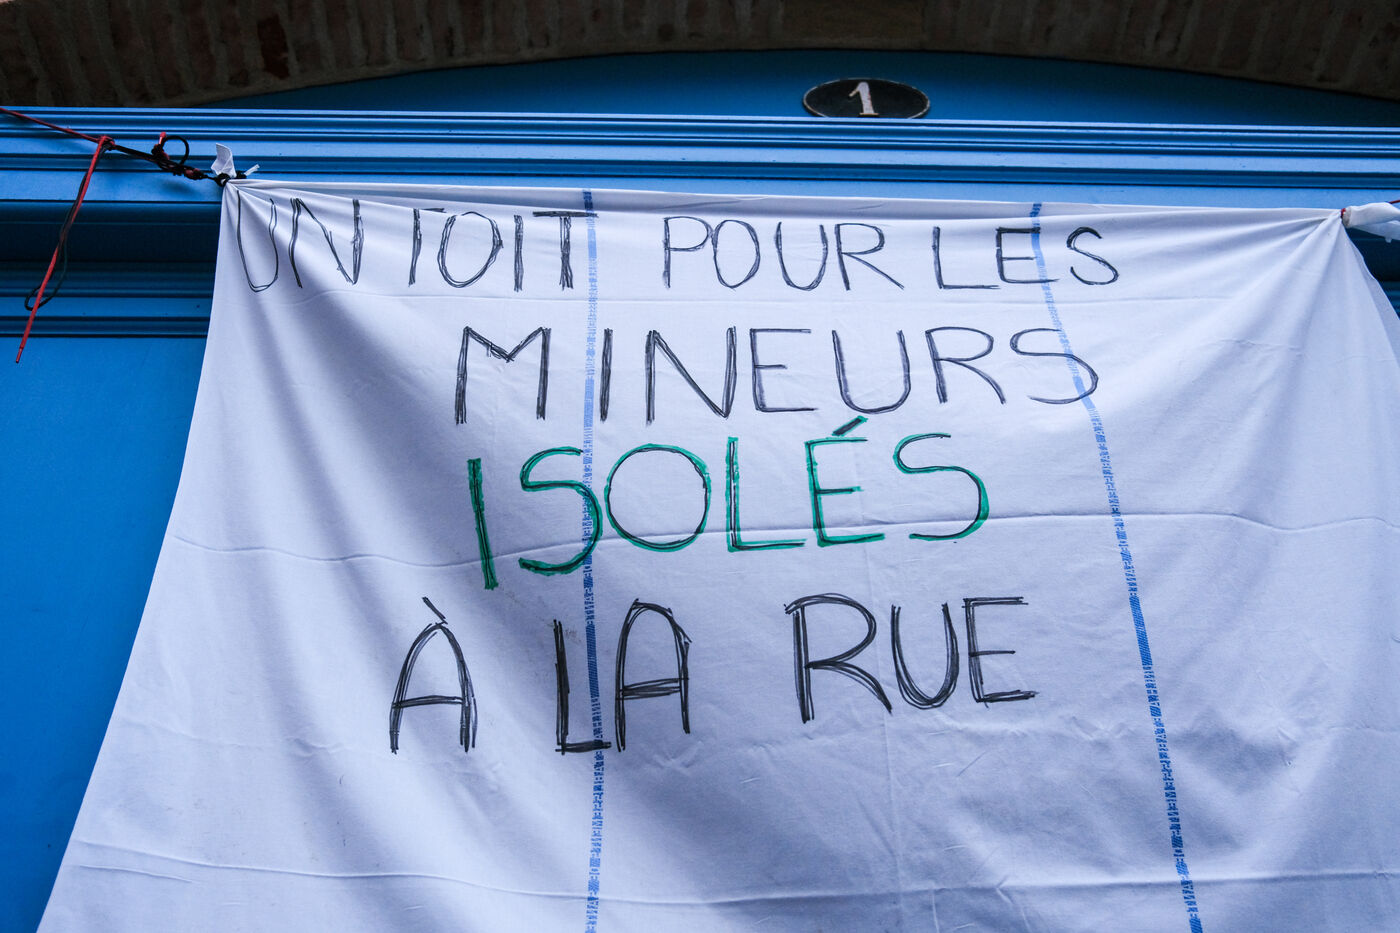 1
UN TOIT POUR LES
MINEURS
ISOLÉS
À LA RUE